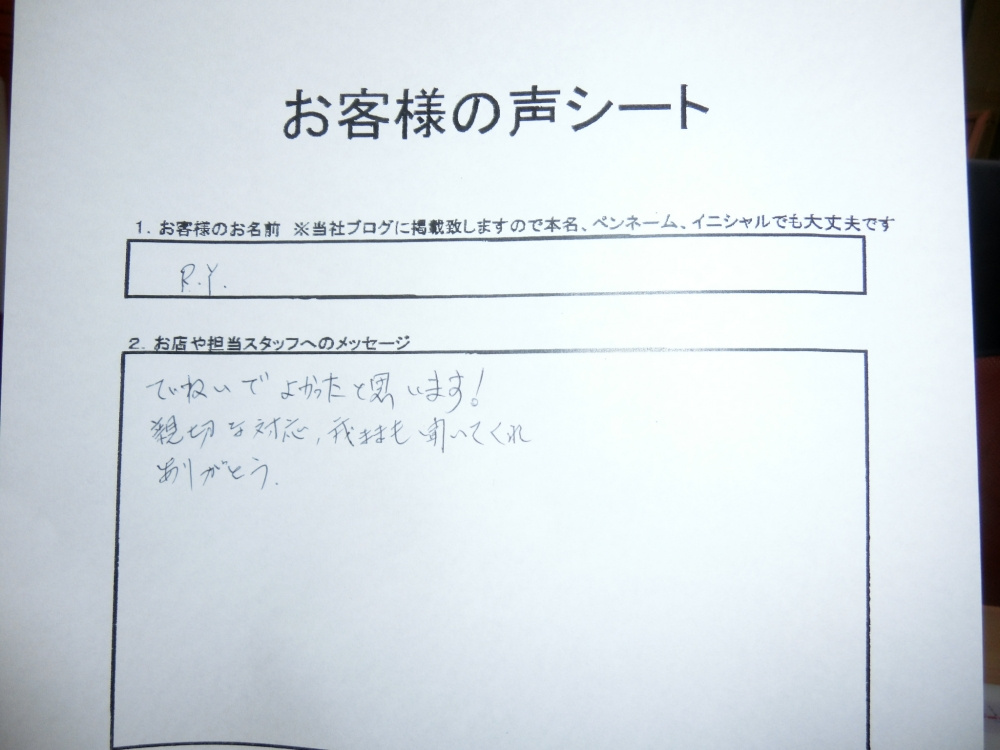 お客様の声シート
1. お客様のお名前 ※当社ブログに掲載致しますので本名、ペンネーム、イニシャルでも大丈夫です
R.Y.
2. お店や担当スタッフへのメッセージ
ていねいでよかったと思います!
親切な対応, 我ままも聞いてくれ
ありがとう.